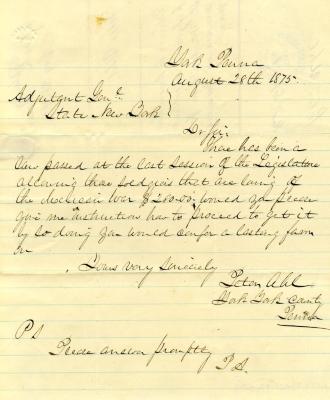 York Penna
August 28th 1875
Adjutgnt Genl
State New York
Dr Sir
Thare has bena
Law passed at the last session of the Legislature
allowing thas soldgiers that are living of
the Mechican War $200.00 would you pleas
give me instructions how to proceed to get it
by so doing you would confor a lasting favor
on
Yours very sincerly
Peter Ahl
York York county
Penna
P S
Pleas answer promptly
P A.